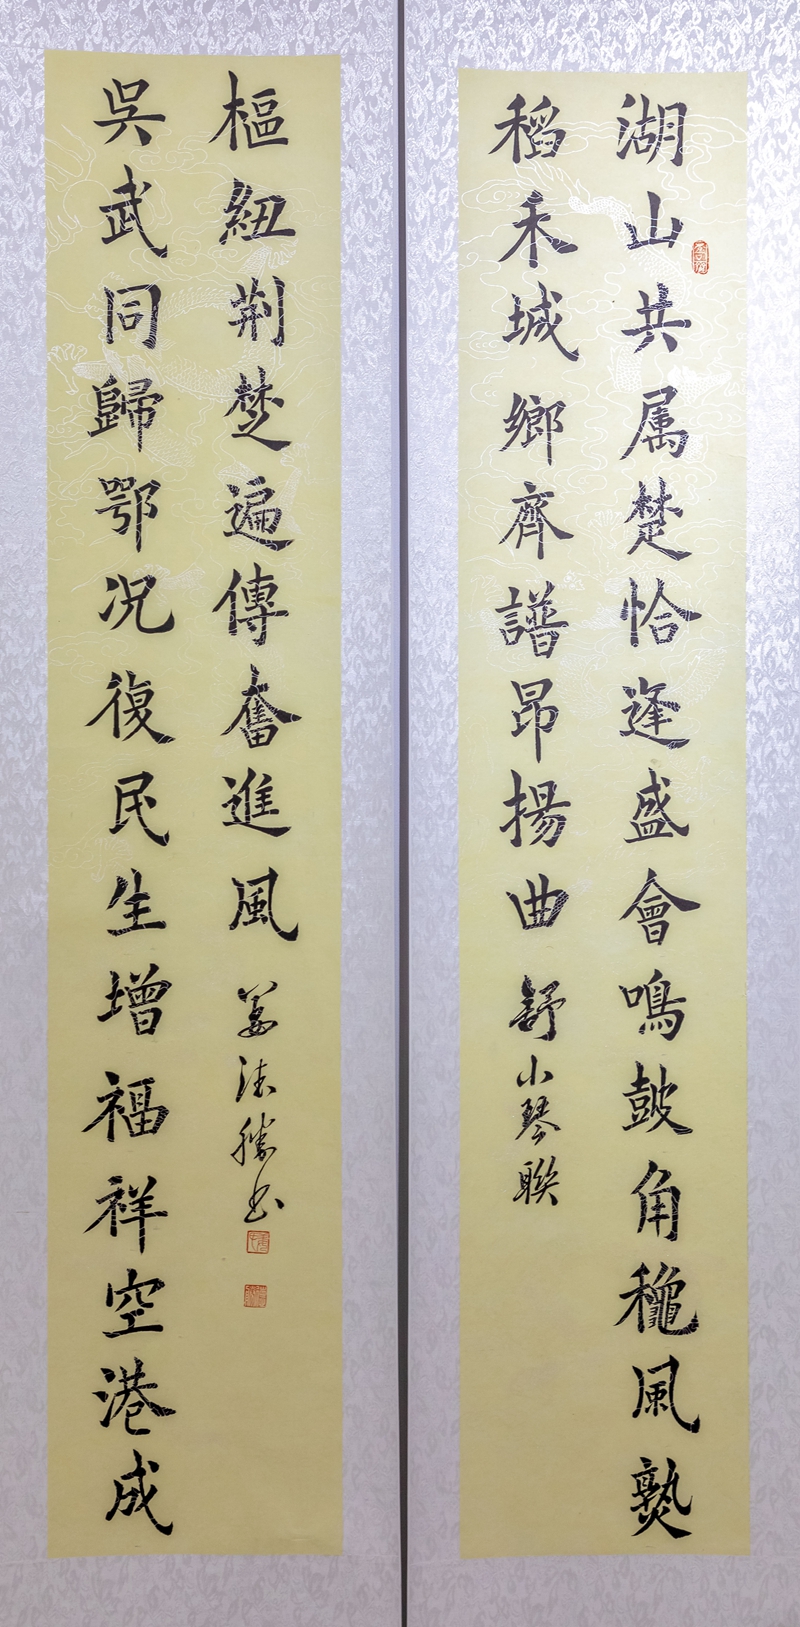 湖山共属楚恰逢盛會鳴皷角龝風熟
稻禾城鄉齊譜昂揚曲 舒小琴聯
吳武同歸鄂况復民生增福祥空港成
樞紐荆楚遍傳奮進風 姜法勝书